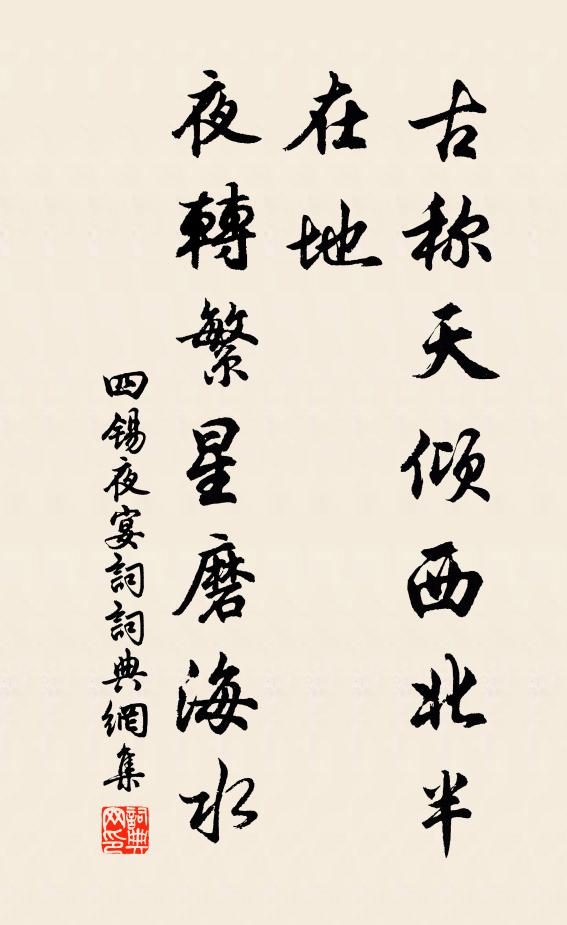 古称天倾西北半
在地
夜轉繁星磨海水
四锡夜宴詞詞典網集
詞典网印